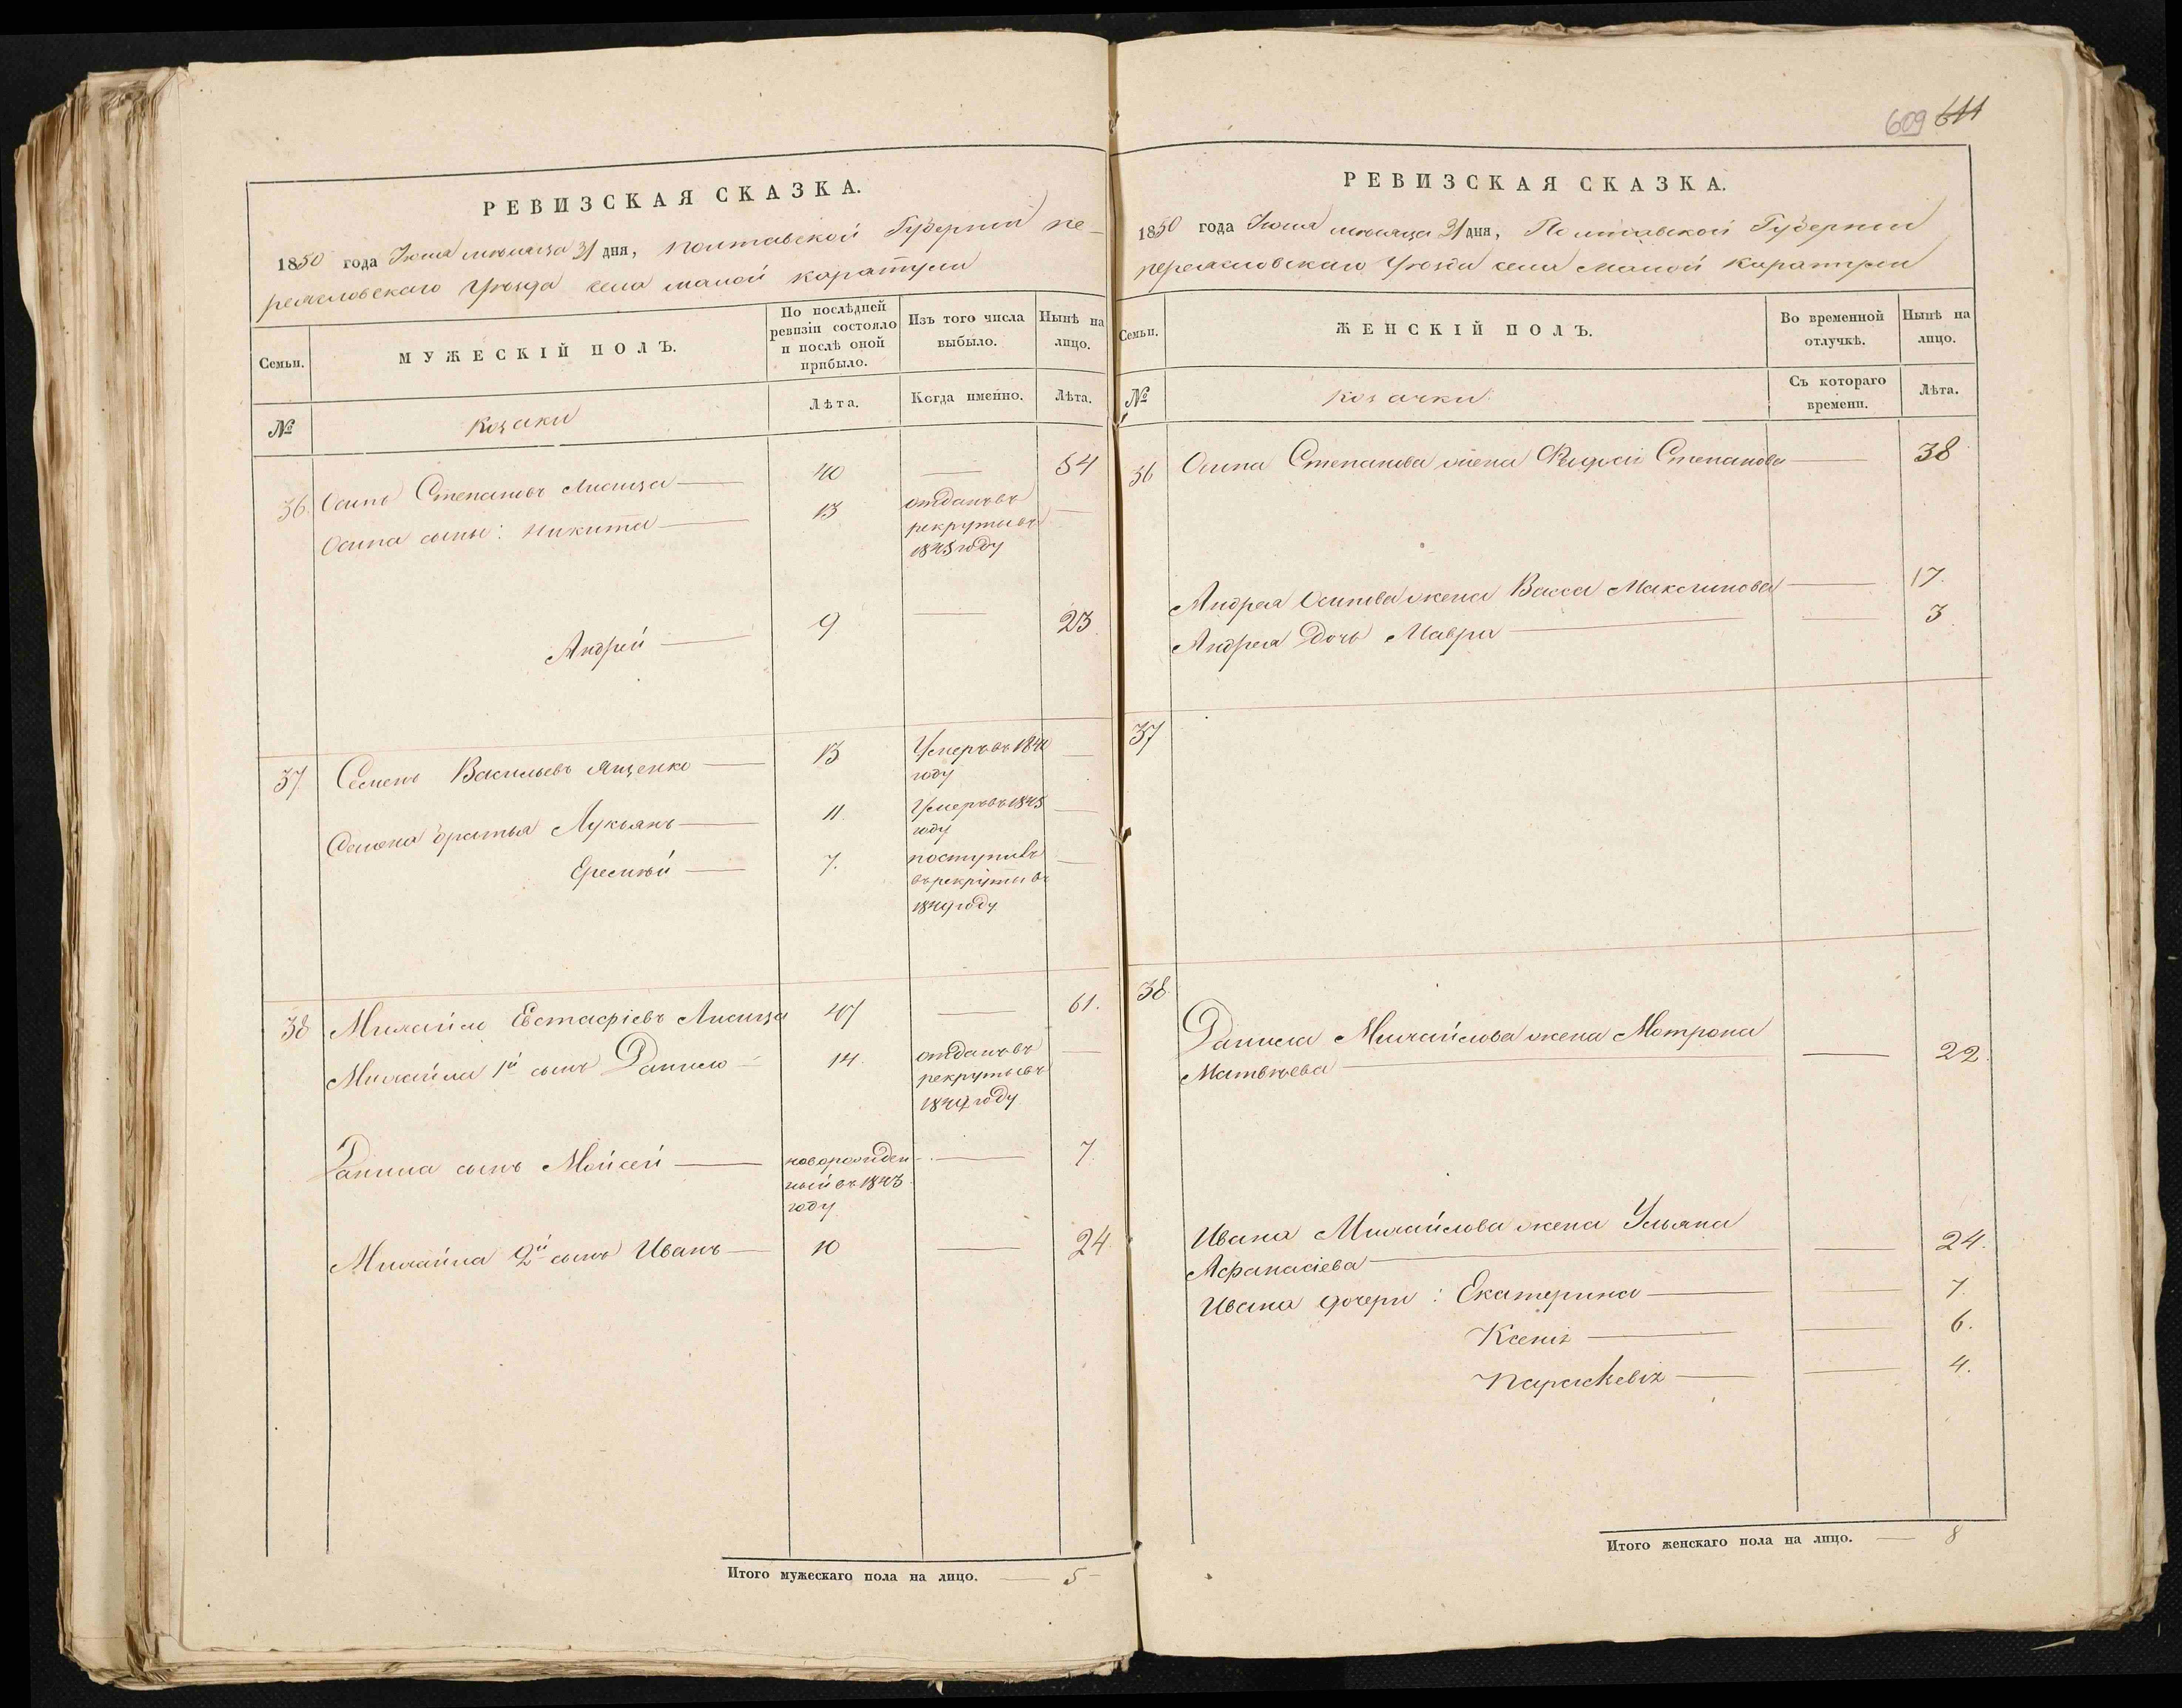 609 611
РЕВИЗСКАЯ СКАЗКА.
1850 года Июля мѣсяца 31 дня, Полтавской Губернии пе-
реяславскаго уѣзда села малой каратули
Семьи.
МУЖЕСКІЙ ПОЛЪ.
По послѣдней
ревизіи состояло
и послѣ оной
прибыло.
Изъ того числа
выбыло.
Нынѣ на
лицо.
№
козаки
Лѣта.
Когда именно.
Лѣта.
36 Осипъ Степановъ Лисица 40 54
Осипа сыны: Никита 13 отданъ въ
рекруты въ
1845 году
Андрей 9 23
37 Семенъ Васильевъ Ященко 13 Умеръ въ 1840
году
Семена братья Лукьянъ 11. Умеръ въ 1845
году
Еремѣй 7. поступилъ
въ рекруты въ
1849 году.
38 Михайло Евстафіевъ Лисица 47 61.
Михайла 1й сынъ Данило 14 отданъ въ
рекруты въ
1849 году
Данила сынъ Мойсей новорожден-
ный въ 1843
году
7.
Михайла 2й сынъ Иванъ 10 24
Итого мужескаго пола на лицо. 5
РЕВИЗСКАЯ СКАЗКА.
1850 года Июля мѣсяца 31 дня, Полтавской Губернии
переяславскаго Уѣзда села малой каратули
Семьи.
ЖЕНСКІЙ ПОЛЪ.
Во временной
отлучкѣ.
Нынѣ на
лицо.
№
козачки
Съ котораго
времени.
Лѣта.
36 Осипа Степанова жена Степанова 38
Андрея Осипова жена Васса Максимова 17.
Андрея Дочь Мавра 3
37
38
Данила Михайлова жена Мотрона
Матвѣева 22.
Ивана Михайлова жена Ульяна
Афанасіева 24.
Ивана дочери: Екатерина 7.
Ксенія 6.
Параскевія 4.
Итого женскаго пола на лицо. 8